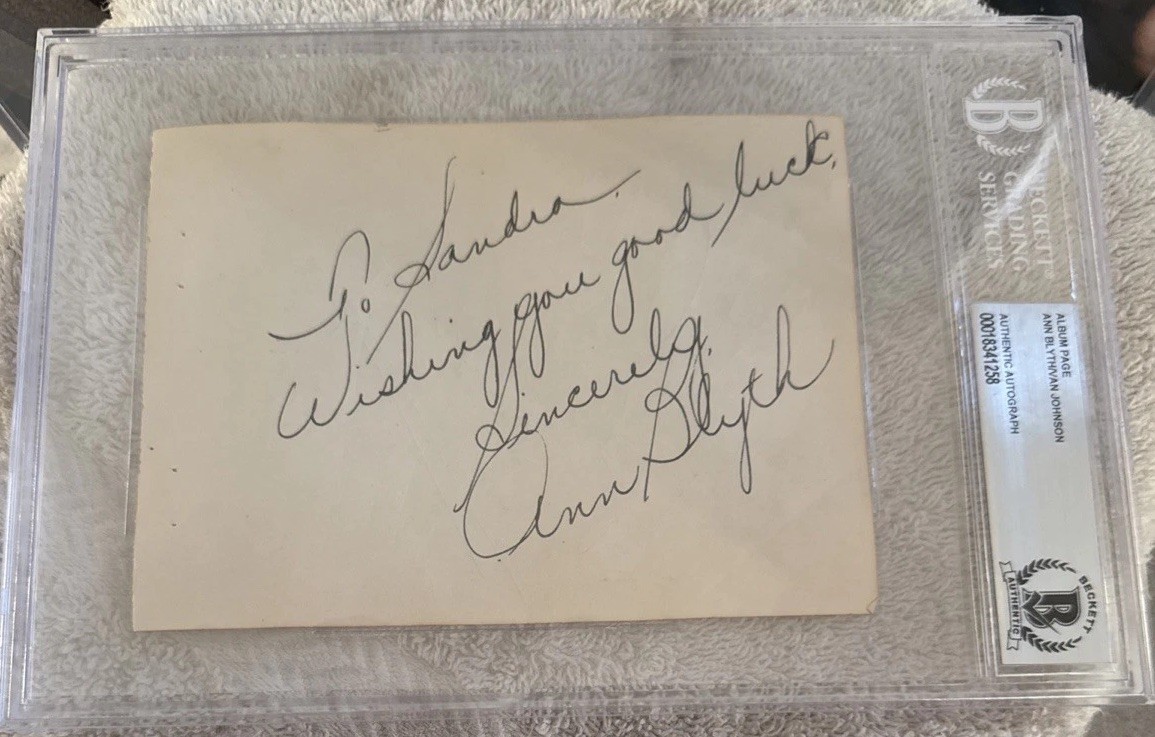 To Sandra.
Wishing you good luck,
Sincerely,
Ann Blyth
BECKETT
GRADING
SERVICES
ALBUM PAGE
ANN BLYTH/VAN JOHNSON
AUTHENTIC AUTOGRAPH
00018341258
B
BECKETT
B
AUTHENTIC